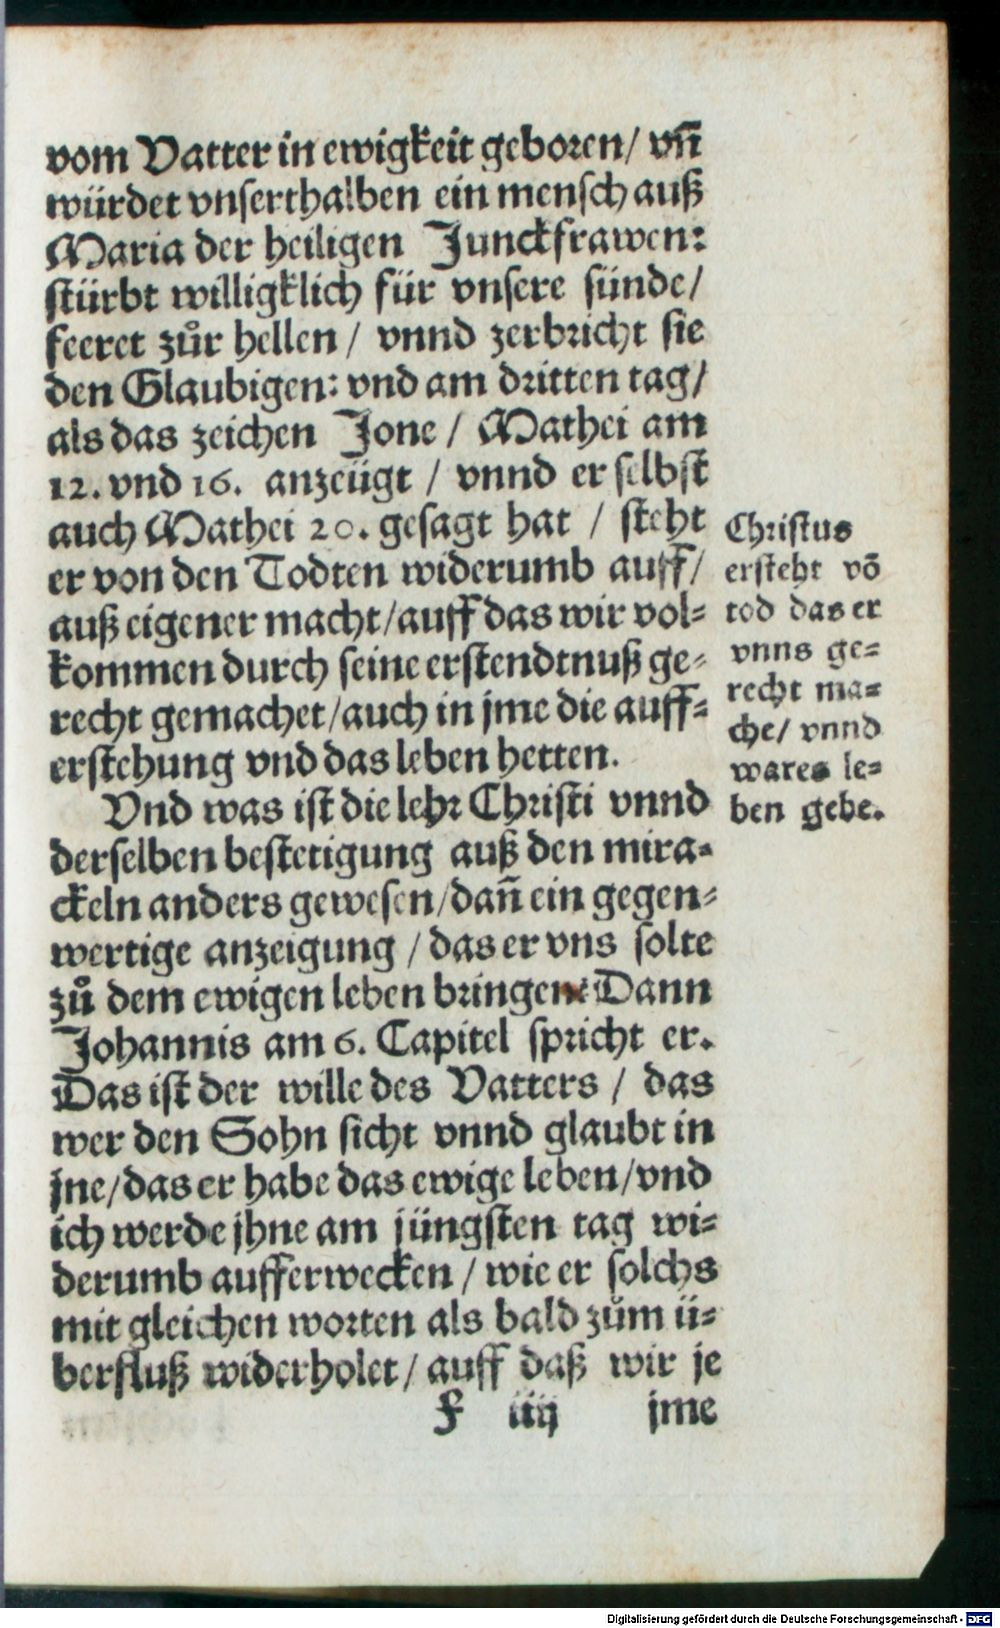 vom Vatter in ewigkeit geboren/ vñ
würdet vnserthalben ein mensch auß
Maria der heiligen Junckfrawen:
stürbt willigklich für vnsere sünde/
feeret zůr hellen / vnnd zerbricht sie
den Glaubigen: vnd am dritten tag/
als das zeichen Jone / Mathei am
12. vnd 16. anzeügt / vnnd er selbst
auch Mathei 20. gesagt hat / steht
er von den Todten widerumb auff/
auß eigener macht/auff das wir vol-
kommen durch seine erstendtnuß ge-
recht gemachet/auch in jme die auff-
erstehung vnd das leben hetten.
Vnd was ist die lehr Christi vnnd
derselben bestetigung auß den mira-
ckeln anders gewesen/dañ ein gegen-
wertige anzeigung / das er vns solte
zů dem ewigen leben bringen: Dann
Johannis am 6. Capitel spricht er.
Das ist der wille des Vatters / das
wer den Sohn sicht vnnd glaubt in
jne/das er habe das ewige leben/vnd
ich werde jhne am jüngsten tag wi-
derumb aufferwecken / wie er solchs
mit gleichen worten als bald zům ü-
berfluß widerholet/ auff daß wir je
F iiij jme
Christus
ersteht võ
tod das er
vnns ge-
recht ma-
che/ vnnd
wares le-
ben gebe.
Digitalisierung gefördert durch die Deutsche Forschungsgemeinschaft - DFG